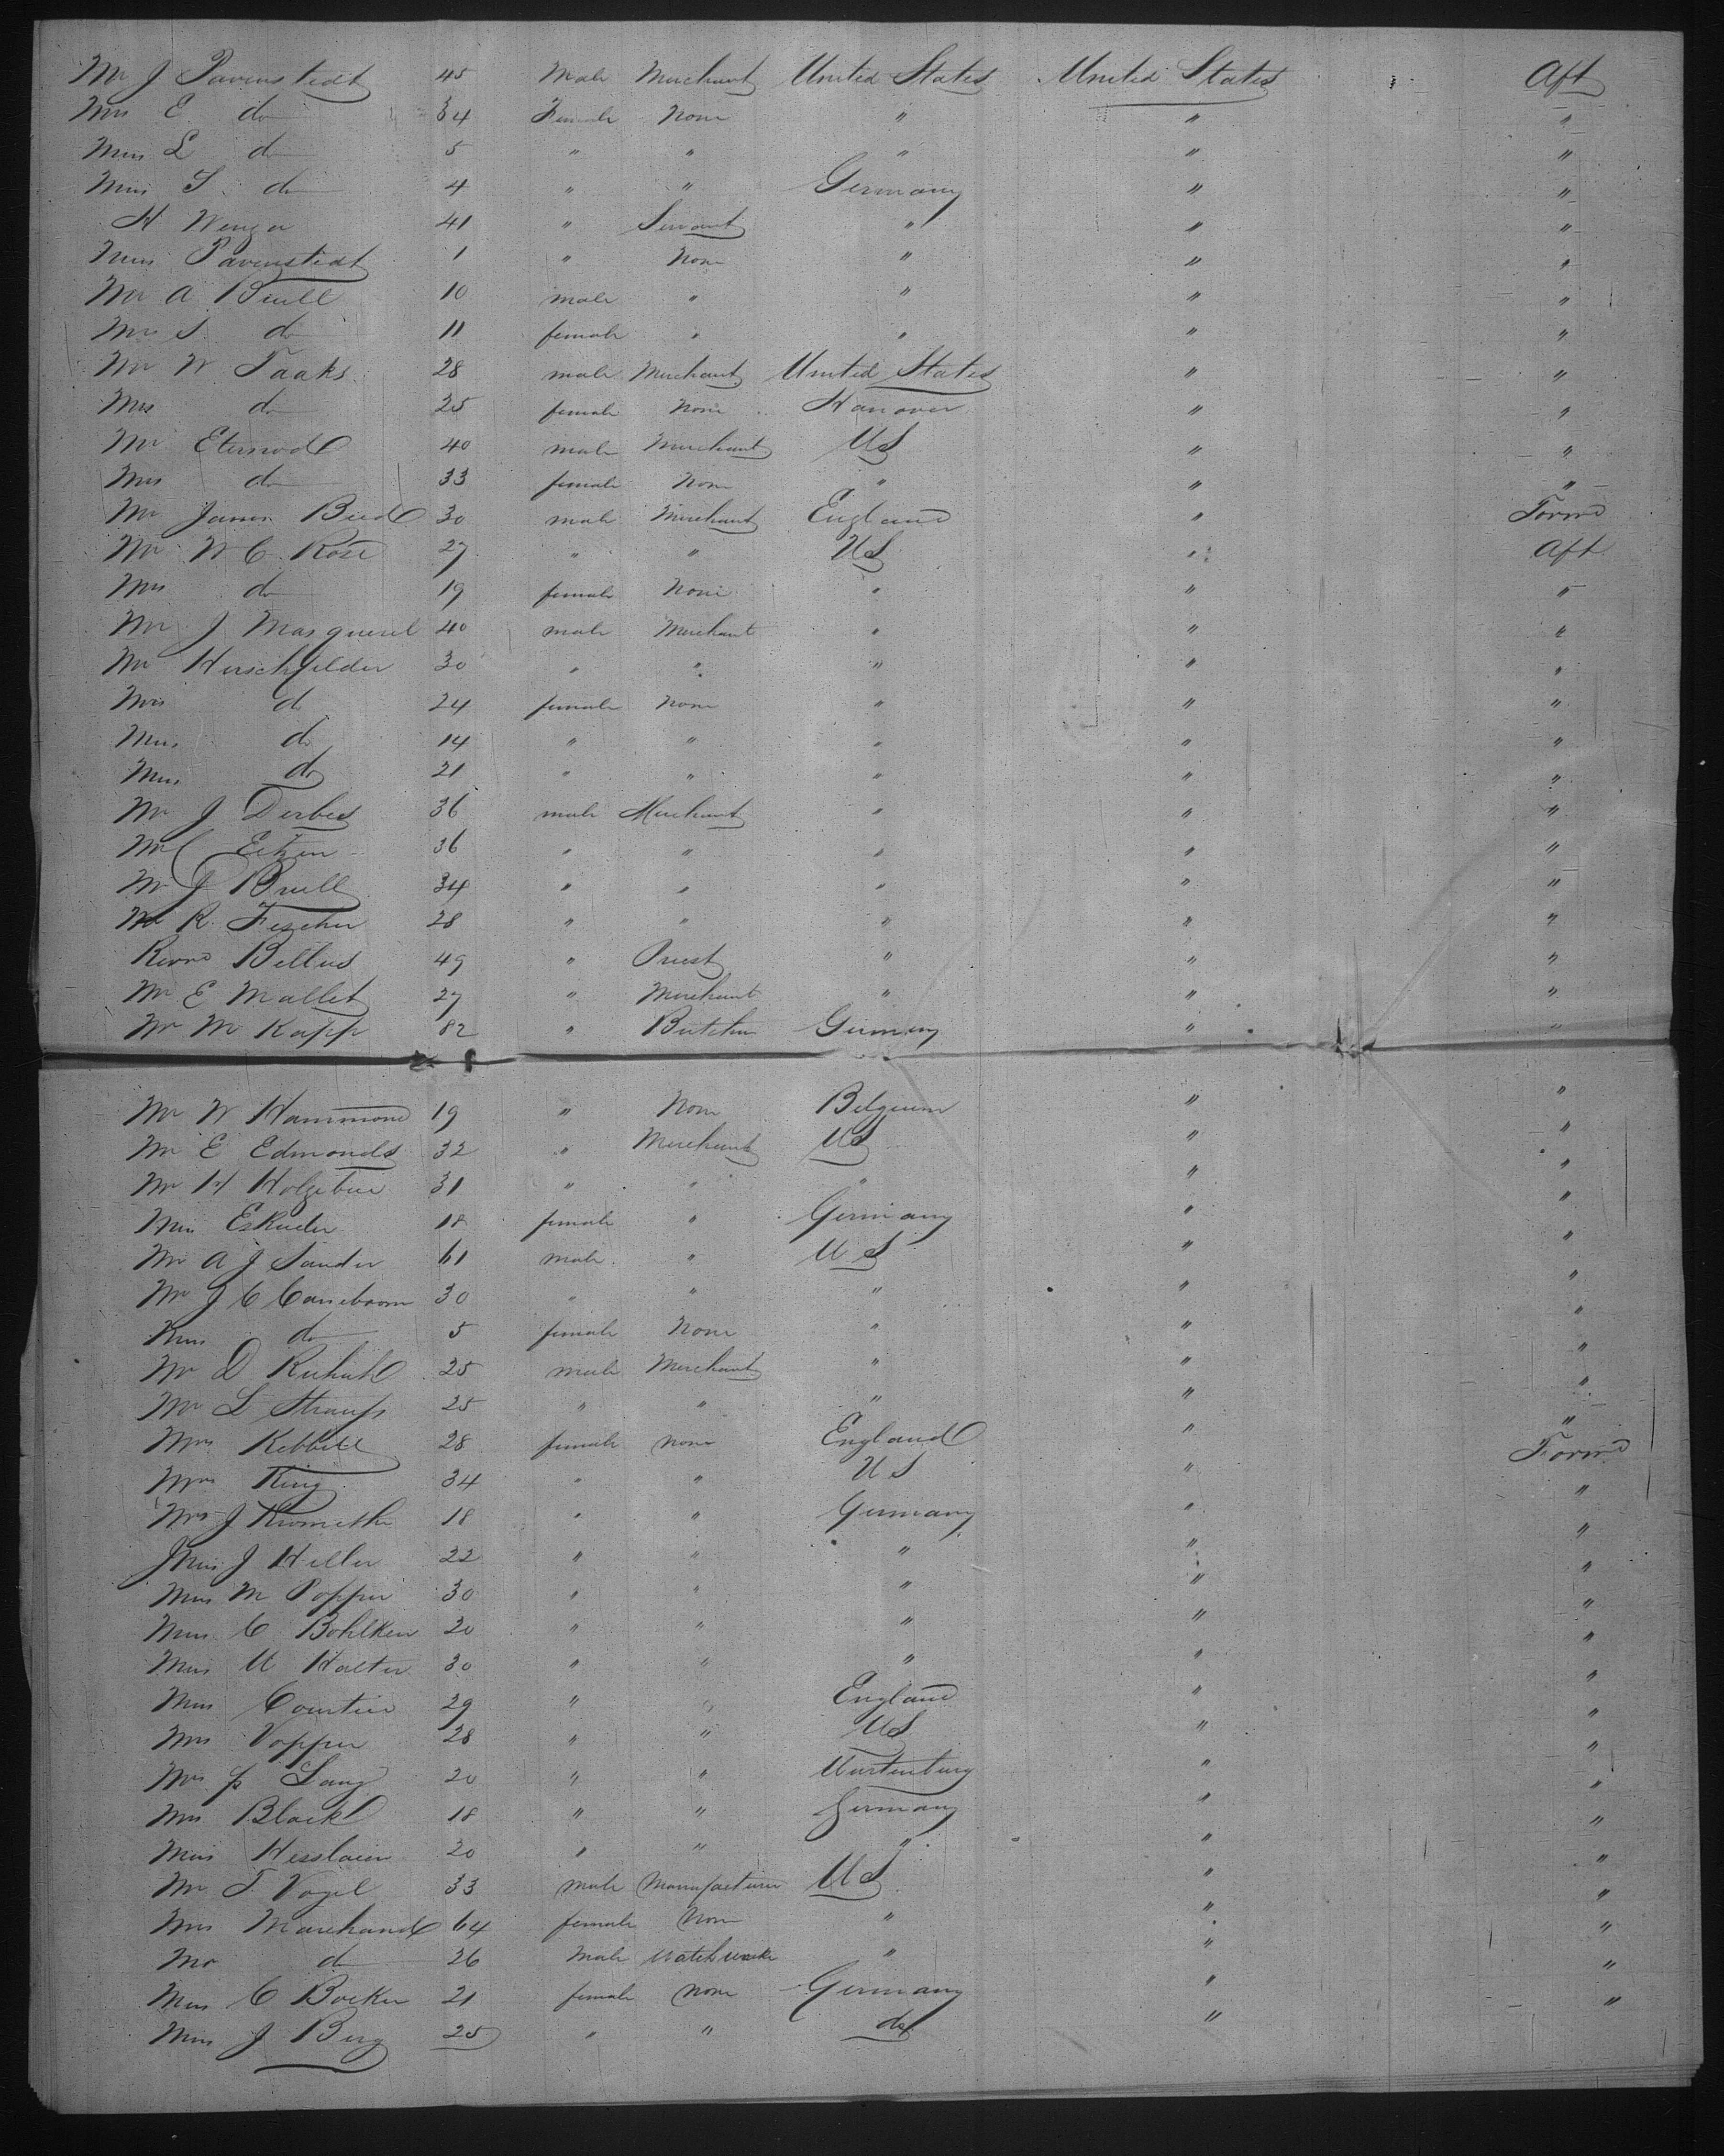 Mr J Pavenstedt 45 Male Merchant United States United States Aft
Mrs E do 34 Female None " " "
Miss L do 5 " " " " "
Miss S do 4 " " Germany " "
H Wenger 41 " Servant " " "
Miss Pavenstedt 1 " None " " "
Mr A Bruell 10 male " " " "
Mrs S do 11 female " " " "
Mr W Taaks 28 male Merchant United States " "
Mrs do 25 female None Hanover " "
Mr Eternod 40 male Merchant US " "
Mrs do 33 female None " " "
Mr James Bird 30 male Merchant England " Forwd
Mr W C Rose 27 " " US " Aft
Mrs do 19 female None " " "
Mr J Masquerel 40 male Merchant " " "
Mr Herschfelder 30 " " " " "
Mrs do 24 female None " " "
Miss do 14 " " " " "
Miss do 21 " " " " "
Mr J Derbes 36 male Merchant " " "
Mr C Eitzen 36 " " " " "
Mr J Bruell 34 " " " " "
Mr R. Fischer 28 " " " " "
Revnd Bellus 49 " Priest " " "
Mr E Mallet 27 " Merchant " " "
Mr M Kapp 82 " Butcher Germany " "
Mr W Hammond 19 " None Belgium " "
Mr E Edmonds 32 " Merchant US " "
Mr H 31 " " " " "
Miss 18 female " Germany " "
Mr A J Sander 61 male " US " "
Mr J C 30 " " " " "
Miss do 5 female None " " "
Mr D 25 male Merchant " " "
Mr L Strauss 25 " " " " "
Mrs 28 female none England " Forwd
Mrs King 34 " " US " "
Mrs J 18 " " Germany " "
Miss J Heller 22 " " " " "
Miss M Popper 30 " " " " "
Miss C Bohlken 20 " " " " "
Miss U Halter 30 " " " " "
Miss 29 " " England " "
Mrs Vopper 28 " " US " "
Mrs p Lang 20 " " Wurtenburg " "
Mrs Black 18 " " Germany " "
Miss Hesslaein 20 " " " " "
Mr T. Vogel 33 male Manufacturer US " "
Mrs Marchand 64 female None " " "
Mr do 26 Male Watchmaker " " "
Miss C Boeker 21 female None Germany " "
Miss J Berg 25 " " do " "